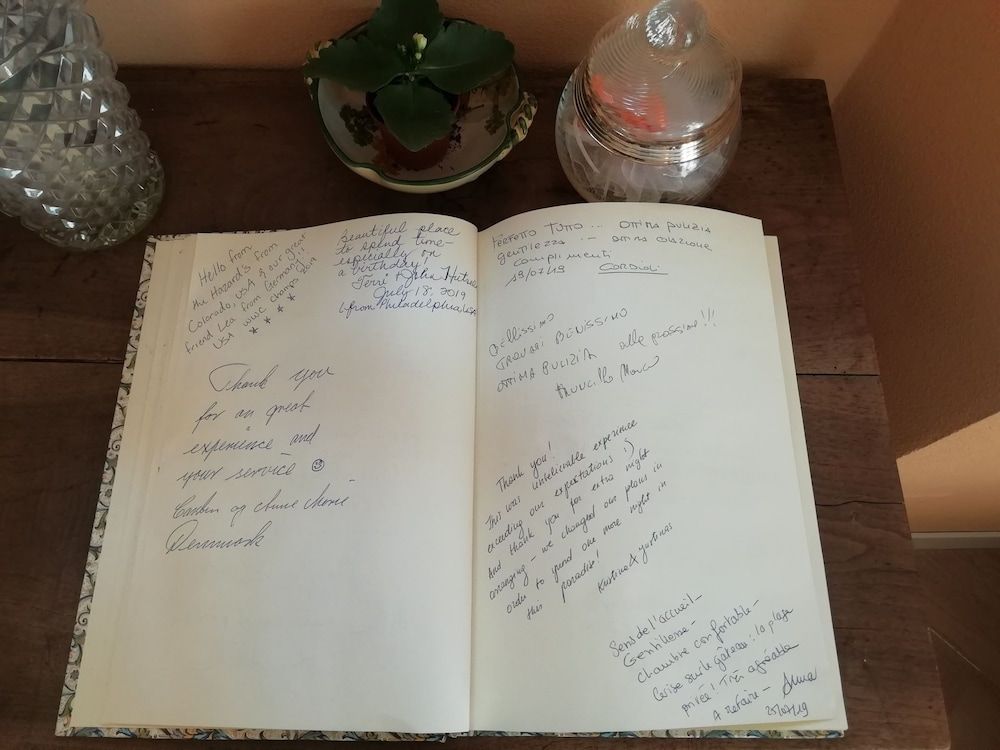 Hello from
the Hazard's from
Colorado, USA & our great
friend Lea from Germany!!
USA WWC Champs 2019
Beautiful place
to spend time-
especially on
a birthday!
Terri & John
July 18, 2019
from Philadelphia, USA
Thank you
for an great
experience and
your service ☺
og Anne Marie
Denmark
PERFETTO TUTTO... OTTIMA PULIZIA
GENTILEZZA - OTTIMA COLAZIONE
COMPLIMENTI
19/07/19 CORDIOLI
BELLISSIMO
TROVARSI BENISSIMO
OTTIMA PULIZIA alla prossima!!!
Thank you!
This was unbelievable experience
exceeding our expectations :)
And thank you for extra night
arranging - we changed our plans in
order to spend one more night in
this paradise!
Kristina & Justinas
Sens de l'accueil -
Gentillesse -
Chambre confortable -
Cerise sur le gâteau : la plage
privée! Très agréable
A refaire - Anna
25/07/19